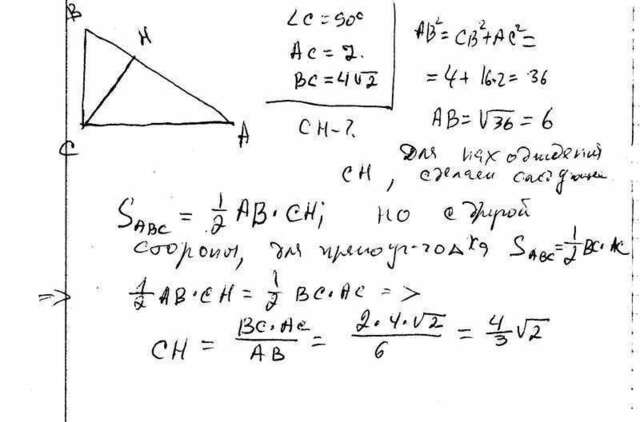 B
H
C
A
∠C = 90°
AC = 2.
BC = 4√2
CH - ?
AB² = CB² + AC² =
= 4 + 16·2 = 36
AB = √36 = 6
Для нахождения
CH, сделаем следующее
S_ABC = 1/2 AB · CH; но с другой
стороны, для прямоуг-го Δ-ка S_ABC = 1/2 BC · AC
=> 1/2 AB · CH = 1/2 BC · AC =>
CH = BC · AC / AB = 2 · 4 · √2 / 6 = 4/3 √2